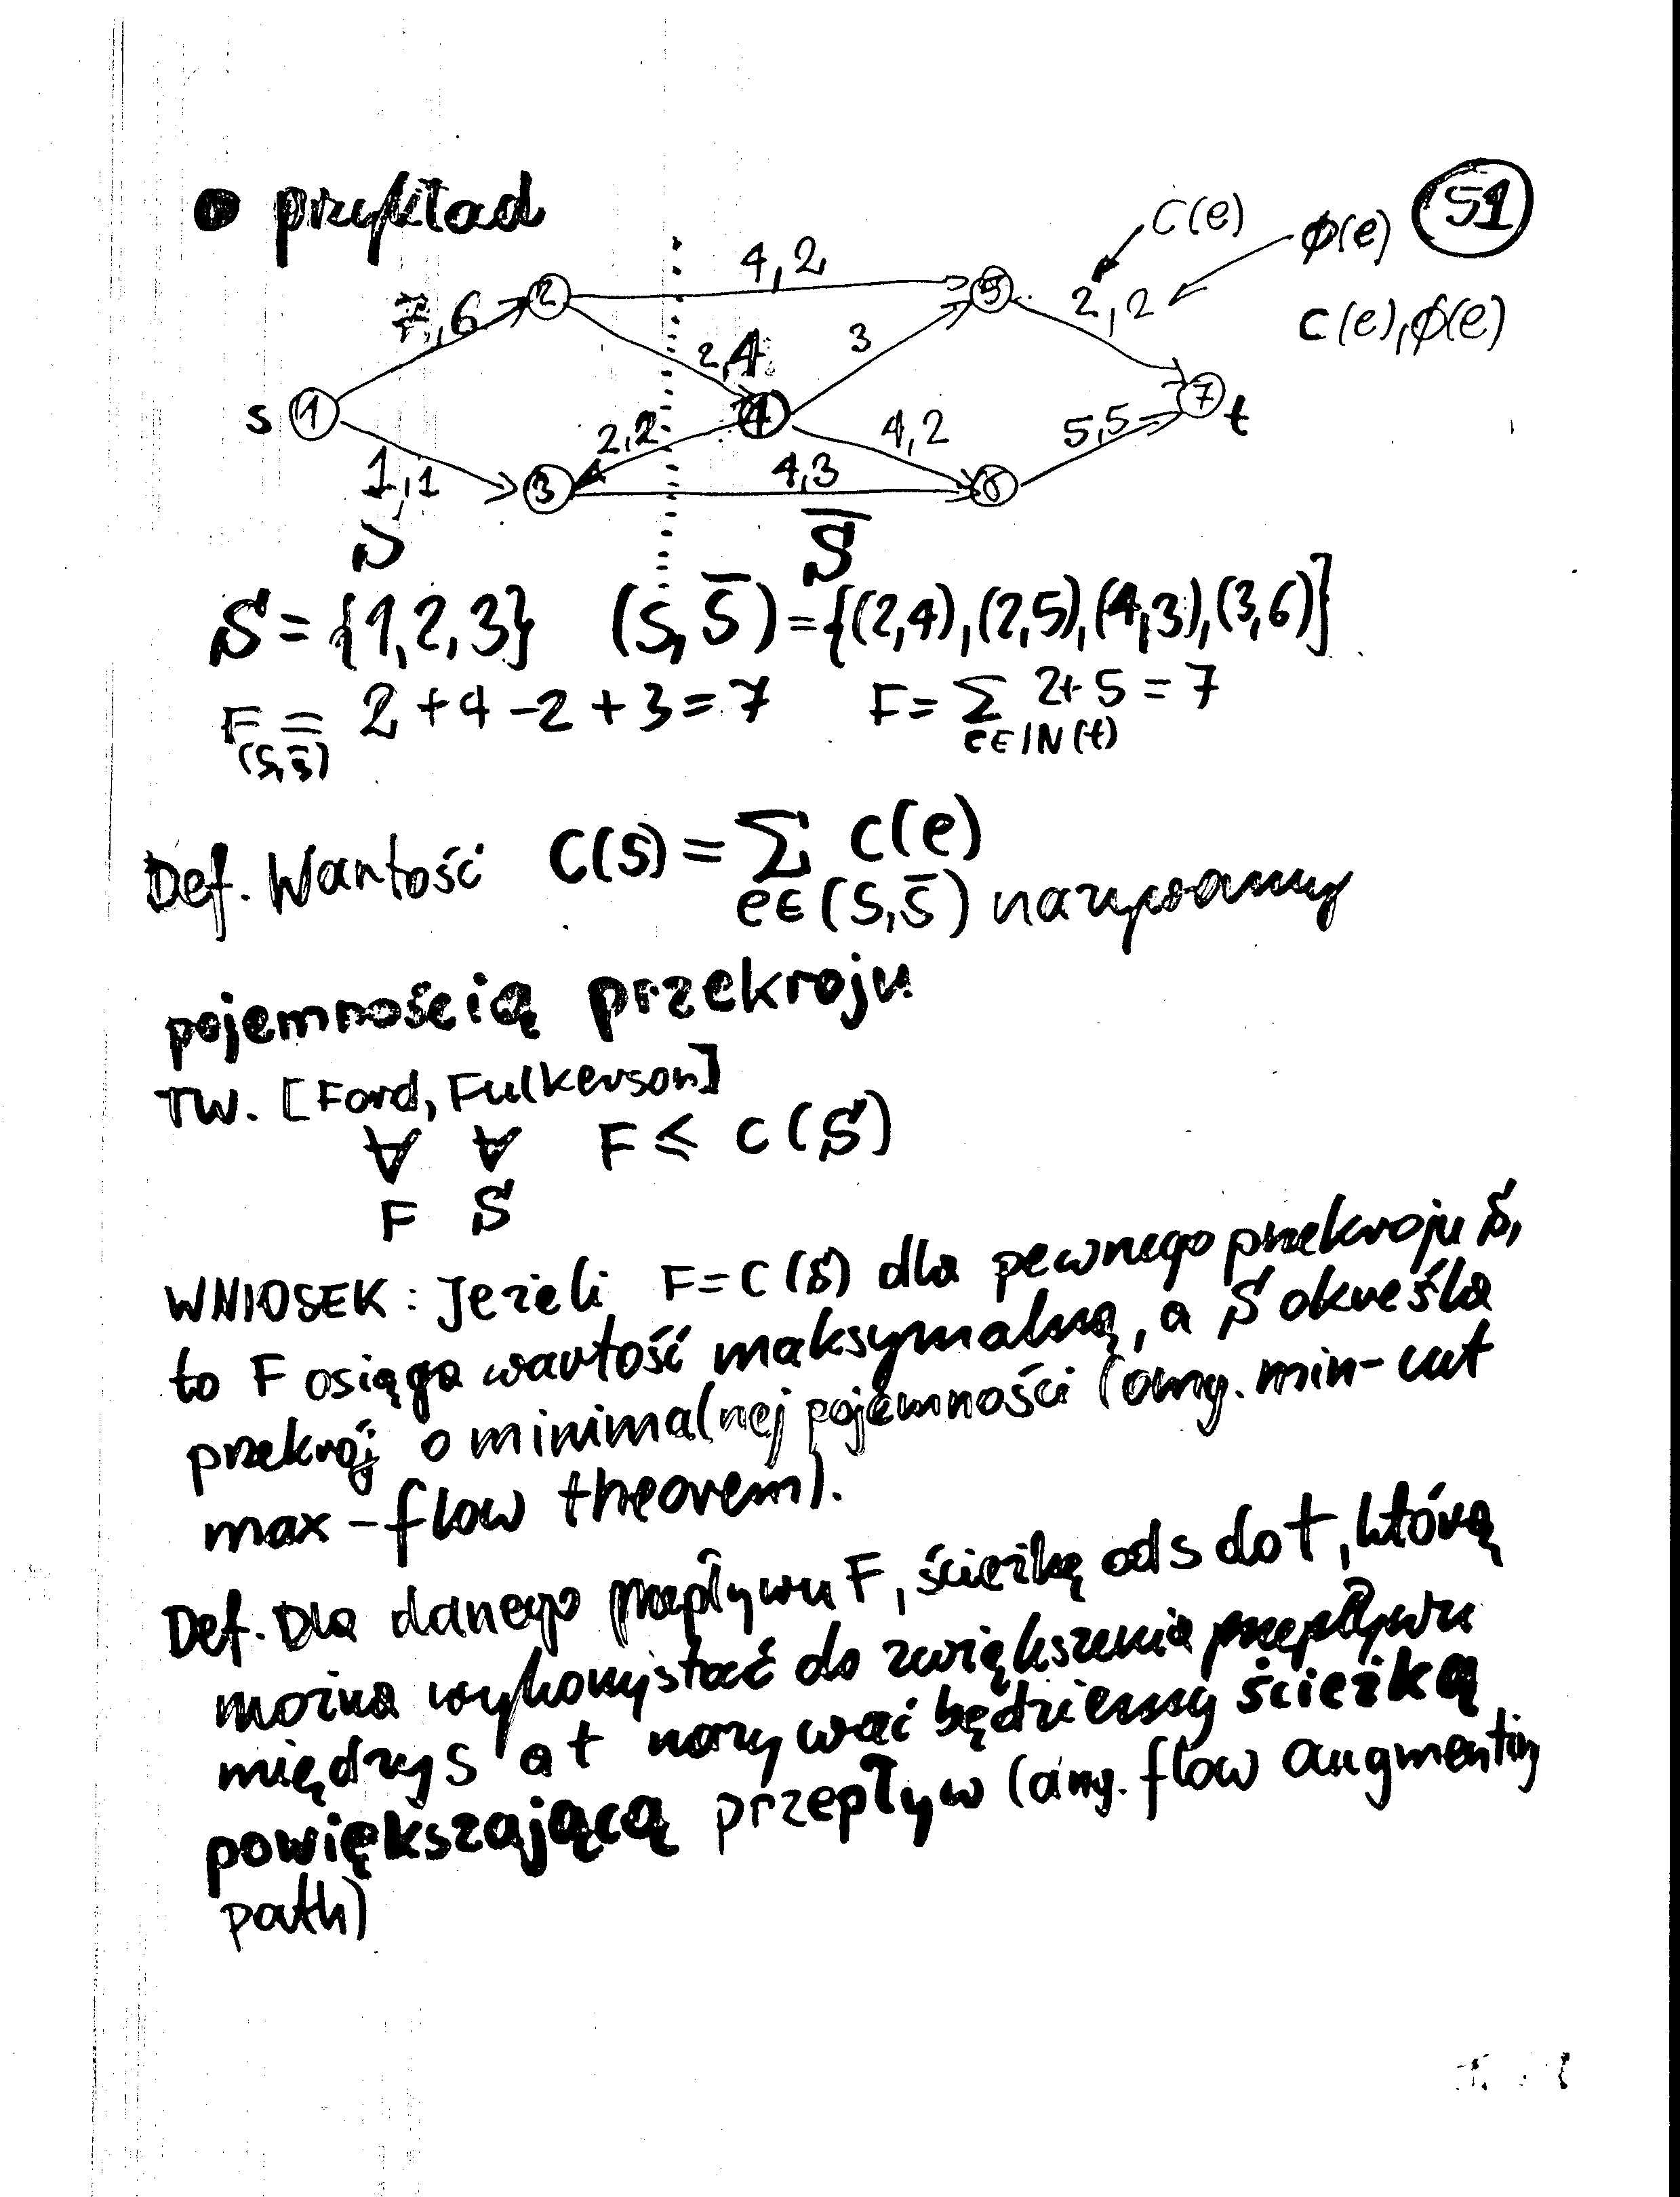 • przykład
51
C(e)
φ(e)
c(e), φ(e)
7,6
4,2
2,4
3
2,2
2,2
4,2
4,3
5,5
1,1
s 1 2 3 4 5 6 7 t
S S̄
S = {1,2,3} (S,S̄) = {(2,4),(2,5),(4,3),(3,6)}
F = 2+4-2+3=7 F = ∑ 2+5=7
(S,S̄) e∈IN(t)
Def. Wartość C(S) = ∑ c(e)
e∈(S,S̄) nazywamy
pojemnością przekroju
TW. [Ford, Fulkerson]
∀ ∀ F ≤ C(S)
F S
WNIOSEK: Jeżeli F=C(S) dla pewnego przekroju S,
to F osiąga wartość maksymalną, a S określa
przekrój o minimalnej pojemności (ang. min-cut
max-flow theorem).
Def. Dla danego przepływu F, ścieżkę od s do t, którą
można wykorzystać do zwiększenia przepływu
między s a t nazywać będziemy ścieżką
powiększającą przepływ (ang. flow augmenting
path)